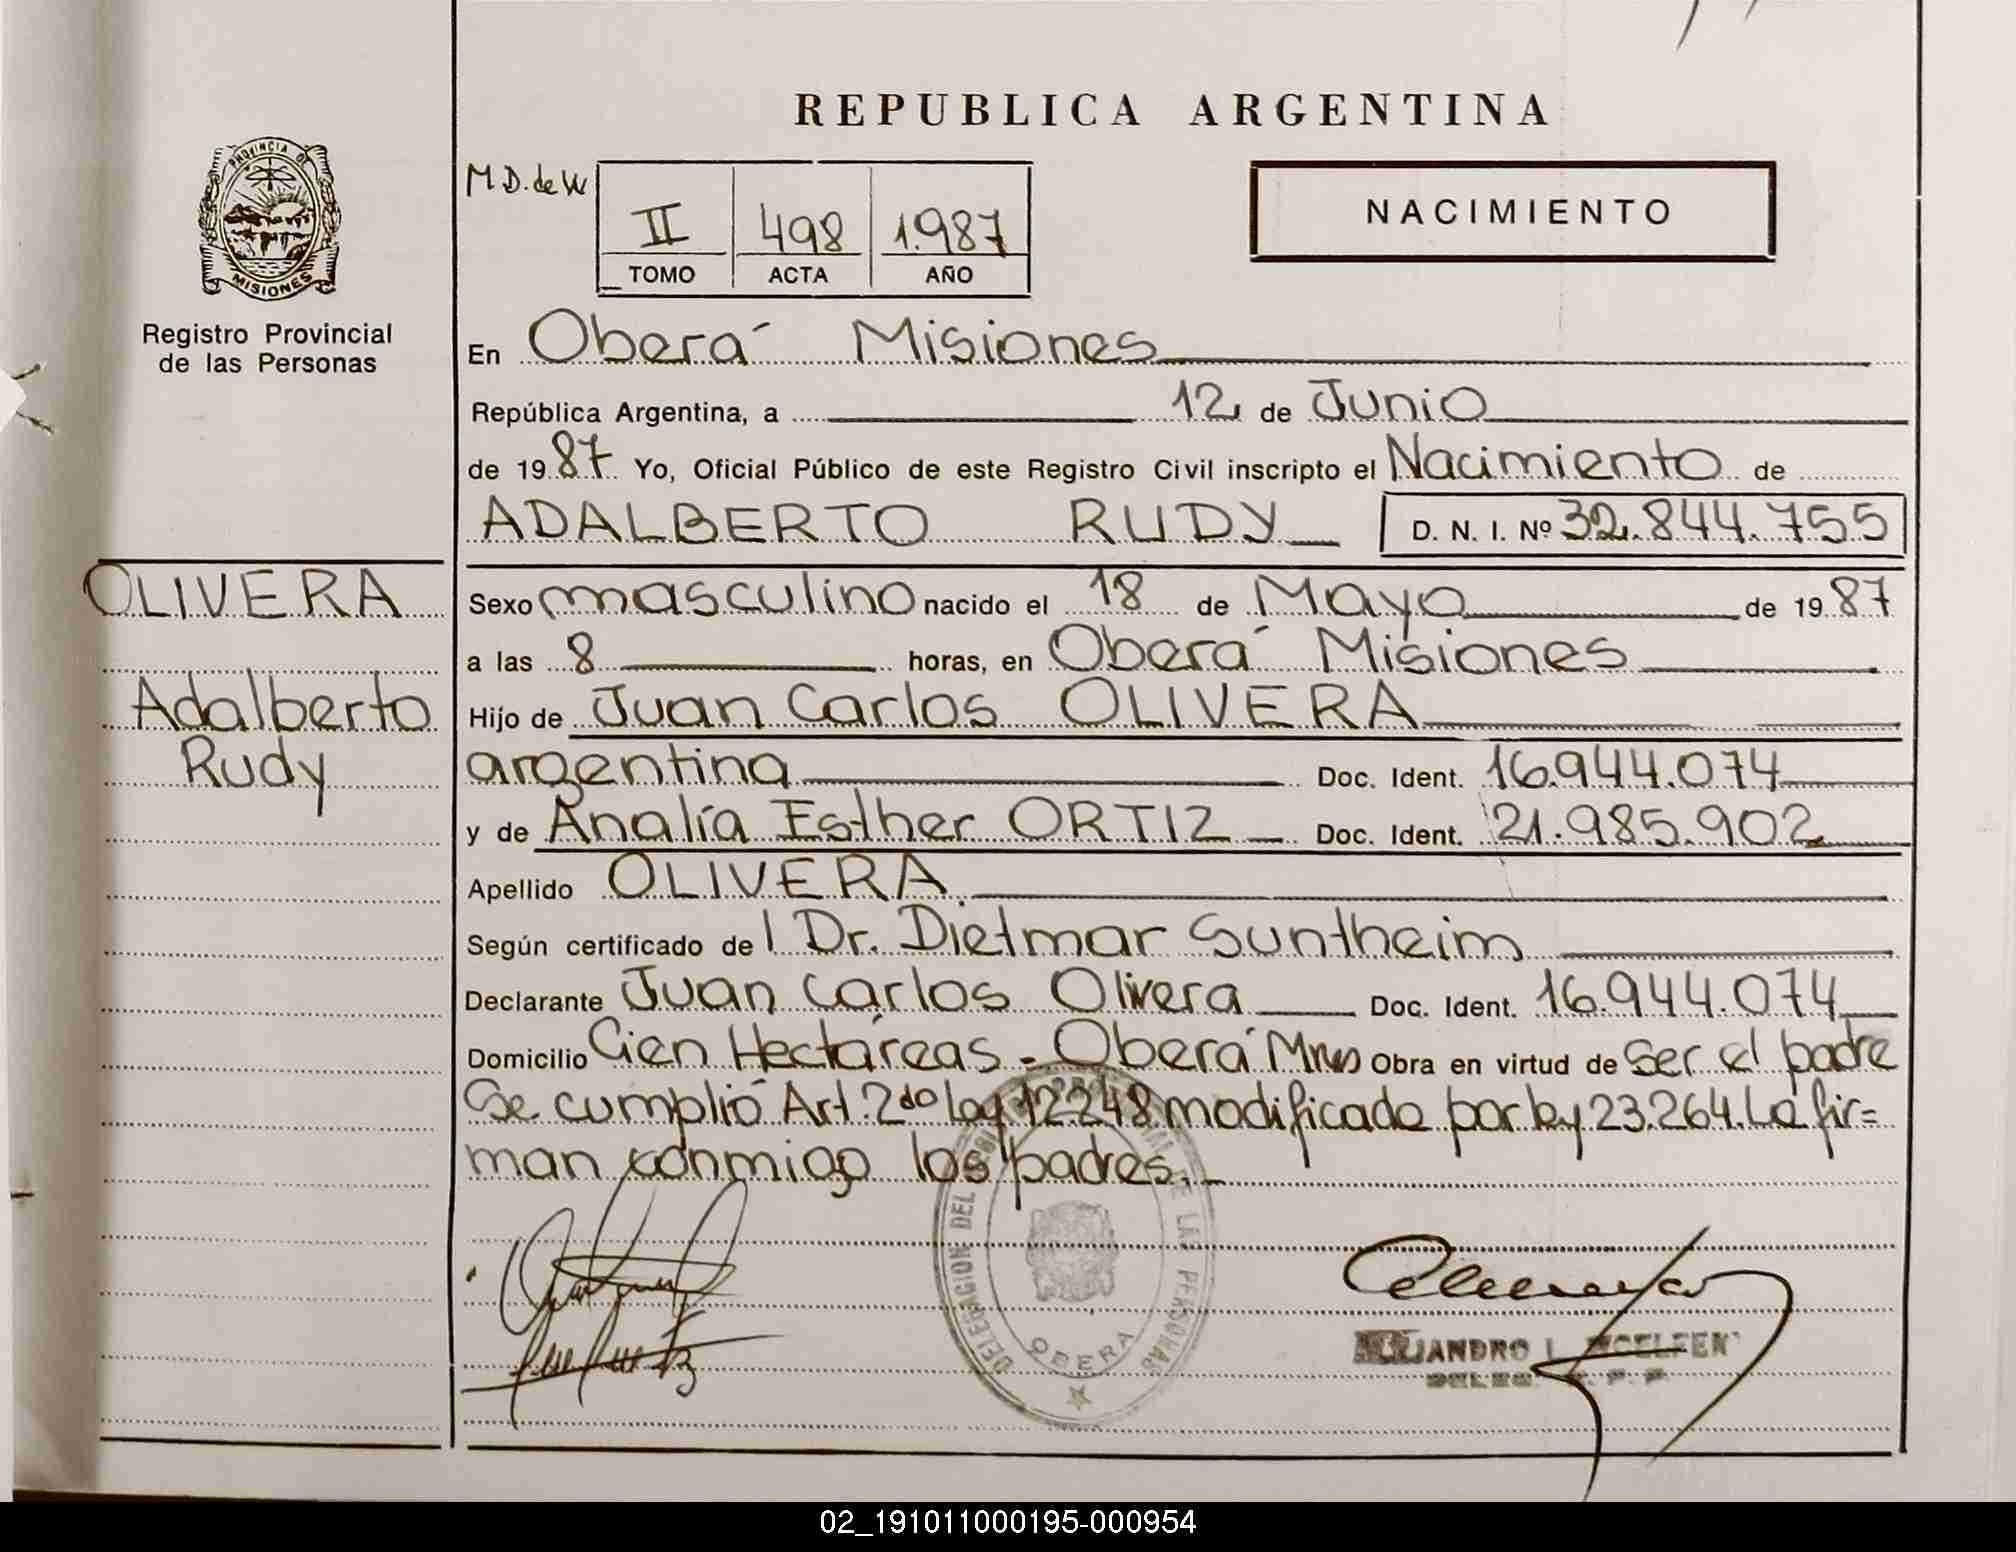 REPUBLICA ARGENTINA
PROVINCIA DE
MISIONES
Registro Provincial
de las Personas
M D. de W
II 498 1.987
TOMO ACTA AÑO
NACIMIENTO
En Oberá Misiones
República Argentina, a 12 de Junio
de 1987 Yo, Oficial Público de este Registro Civil inscripto el Nacimiento de
ADALBERTO RUDY D. N. I. Nº 32.844.755
OLIVERA
Adalberto
Rudy
Sexo masculino nacido el 18 de Mayo de 1987
a las 8 horas, en Oberá Misiones
Hijo de Juan Carlos OLIVERA
argentina Doc. Ident. 16.944.074
y de Analía Esther ORTIZ Doc. Ident. 21.985.902
Apellido OLIVERA
Según certificado de l Dr. Dietmar Suntheim
Declarante Juan Carlos Olivera Doc. Ident. 16.944.074
Domicilio Cien Hectáreas - Oberá Mnes Obra en virtud de ser el padre
Se cumplió Art. 2do Ley 12.248 modificado por ley 23.264. La fir=
man conmigo los padres.
DELEGACION DEL DE LAS PERSONAS
OBERA
02_191011000195-000954